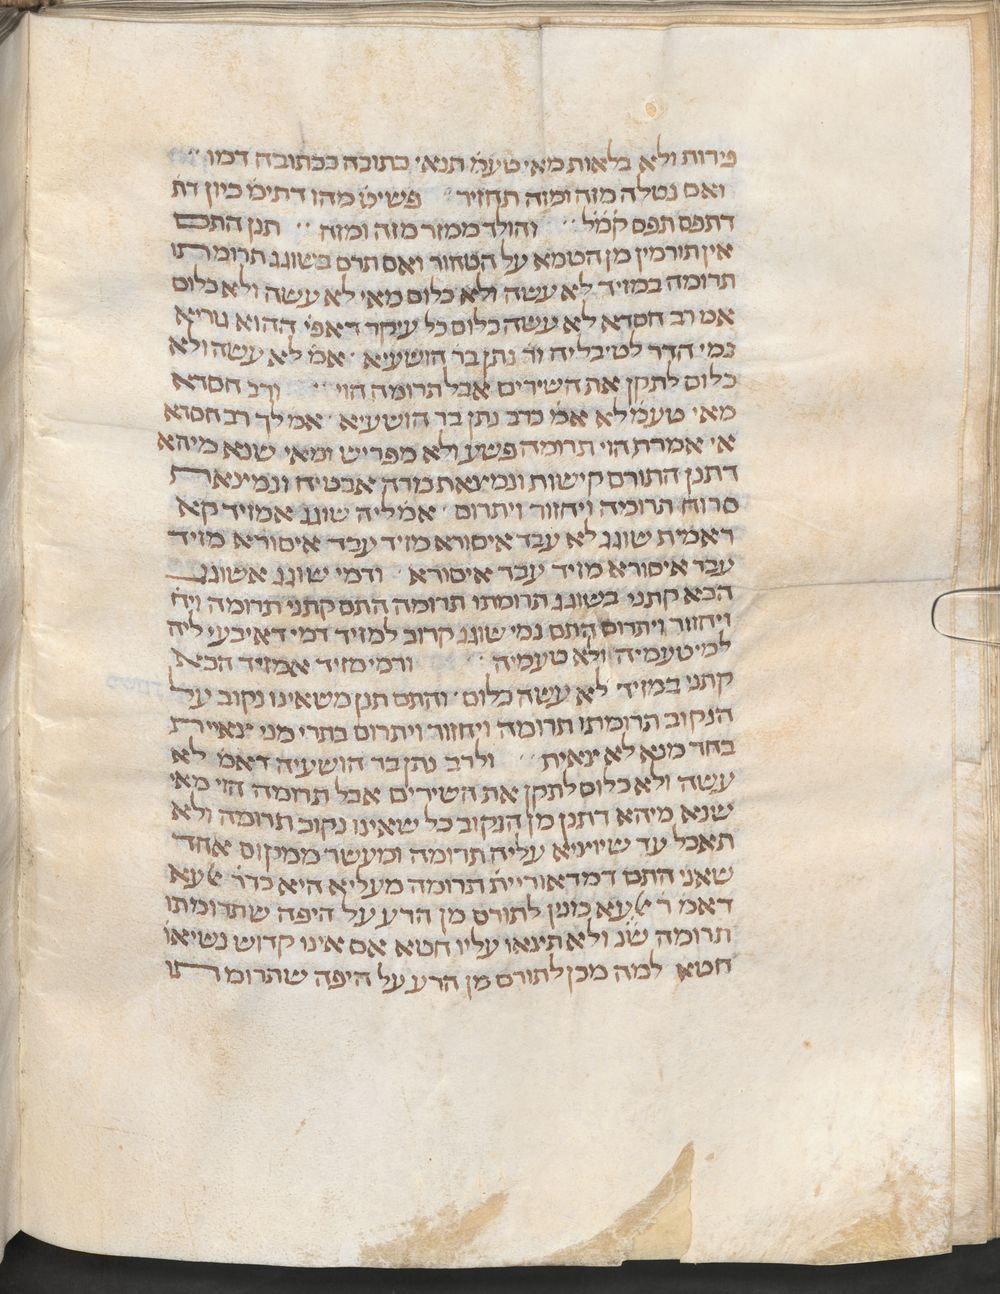 פירות ולא בלאות מאי טעמ׳ תנאי כתובה ככתובה דמו
ואם נטלה מזה ומזה תחזיר פשיט׳ מהו דתימ׳ כיון דת׳
דתפס תפס קמ״ל והולד ממזר מזה ומזה תנן התם
אין תורמין מן הטמא על הטהור ואם תרם בשוגג תרומתו
תרומה במזיד לא עשה ולא כלום מאי לא עשה ולא כלום
אמ׳ רב חסדא לא עשה כלום כל עיקר דאפי׳ ההוא גריא
נמי הדר לטיבליה ור׳ נתן בר הושעיא אמ׳ לא עשה ולא
כלום לתקן את השירים אבל תרומה הוי ורב חסדא
מאי טעמ׳ לא אמ׳ כרב נתן בר הושעיא אמ׳ לך רב חסדא
אי אמרת הוי תרומה פשע ולא מפריש ומאי שנא מיהא
דתנן התורם קישות ונמצאת מרה אבטיח ונמצאת
סרוח תרומה ויחזור ויתרום אמ׳ ליה שוגג אמזיד קא
ראמית שוגג לא עבד איסורא מזיד עבד איסורא מזיד
עבד איסורא מזיד עבד איסורא ורמי שוגג אשוגג
הכא קתני בשוגג תרומתו תרומה התם קתני תרומה ויח׳
ויחזור ויתרום התם נמי שוגג קרוב למזיד דמי דאיבעי ליה
למיטעמיה ולא טעמיה ורמי מזיד אמזיד הכא
קתני במזיד לא עשה כלום והתם תנן משאינו נקוב על
הנקוב תרומתו תרומה ויחזור ויתרום בתרי מני צאית
בחד מנא לא צאית ולרב נתן בר הושעיה דאמ׳ לא
עשה ולא כלום לתקן את השירים אבל תרומה הוי מאי
שנא מיהא דתנן מן הנקוב כל שאינו נקוב תרומה ולא
תאכל עד שיוציא עליה תרומה ומעשר ממקום אחר
שאני התם דמדאורייתא תרומה מעליא היא כדר׳ אלעא
דאמ׳ ר׳ אלעא מנין לתורם מן הרע על היפה שתרומתו
תרומה שנ׳ ולא תשאו עליו חטא אם אינו קדוש נשיאו׳
חטא למה מכן לתורם מן הרע על היפה שתרומתו